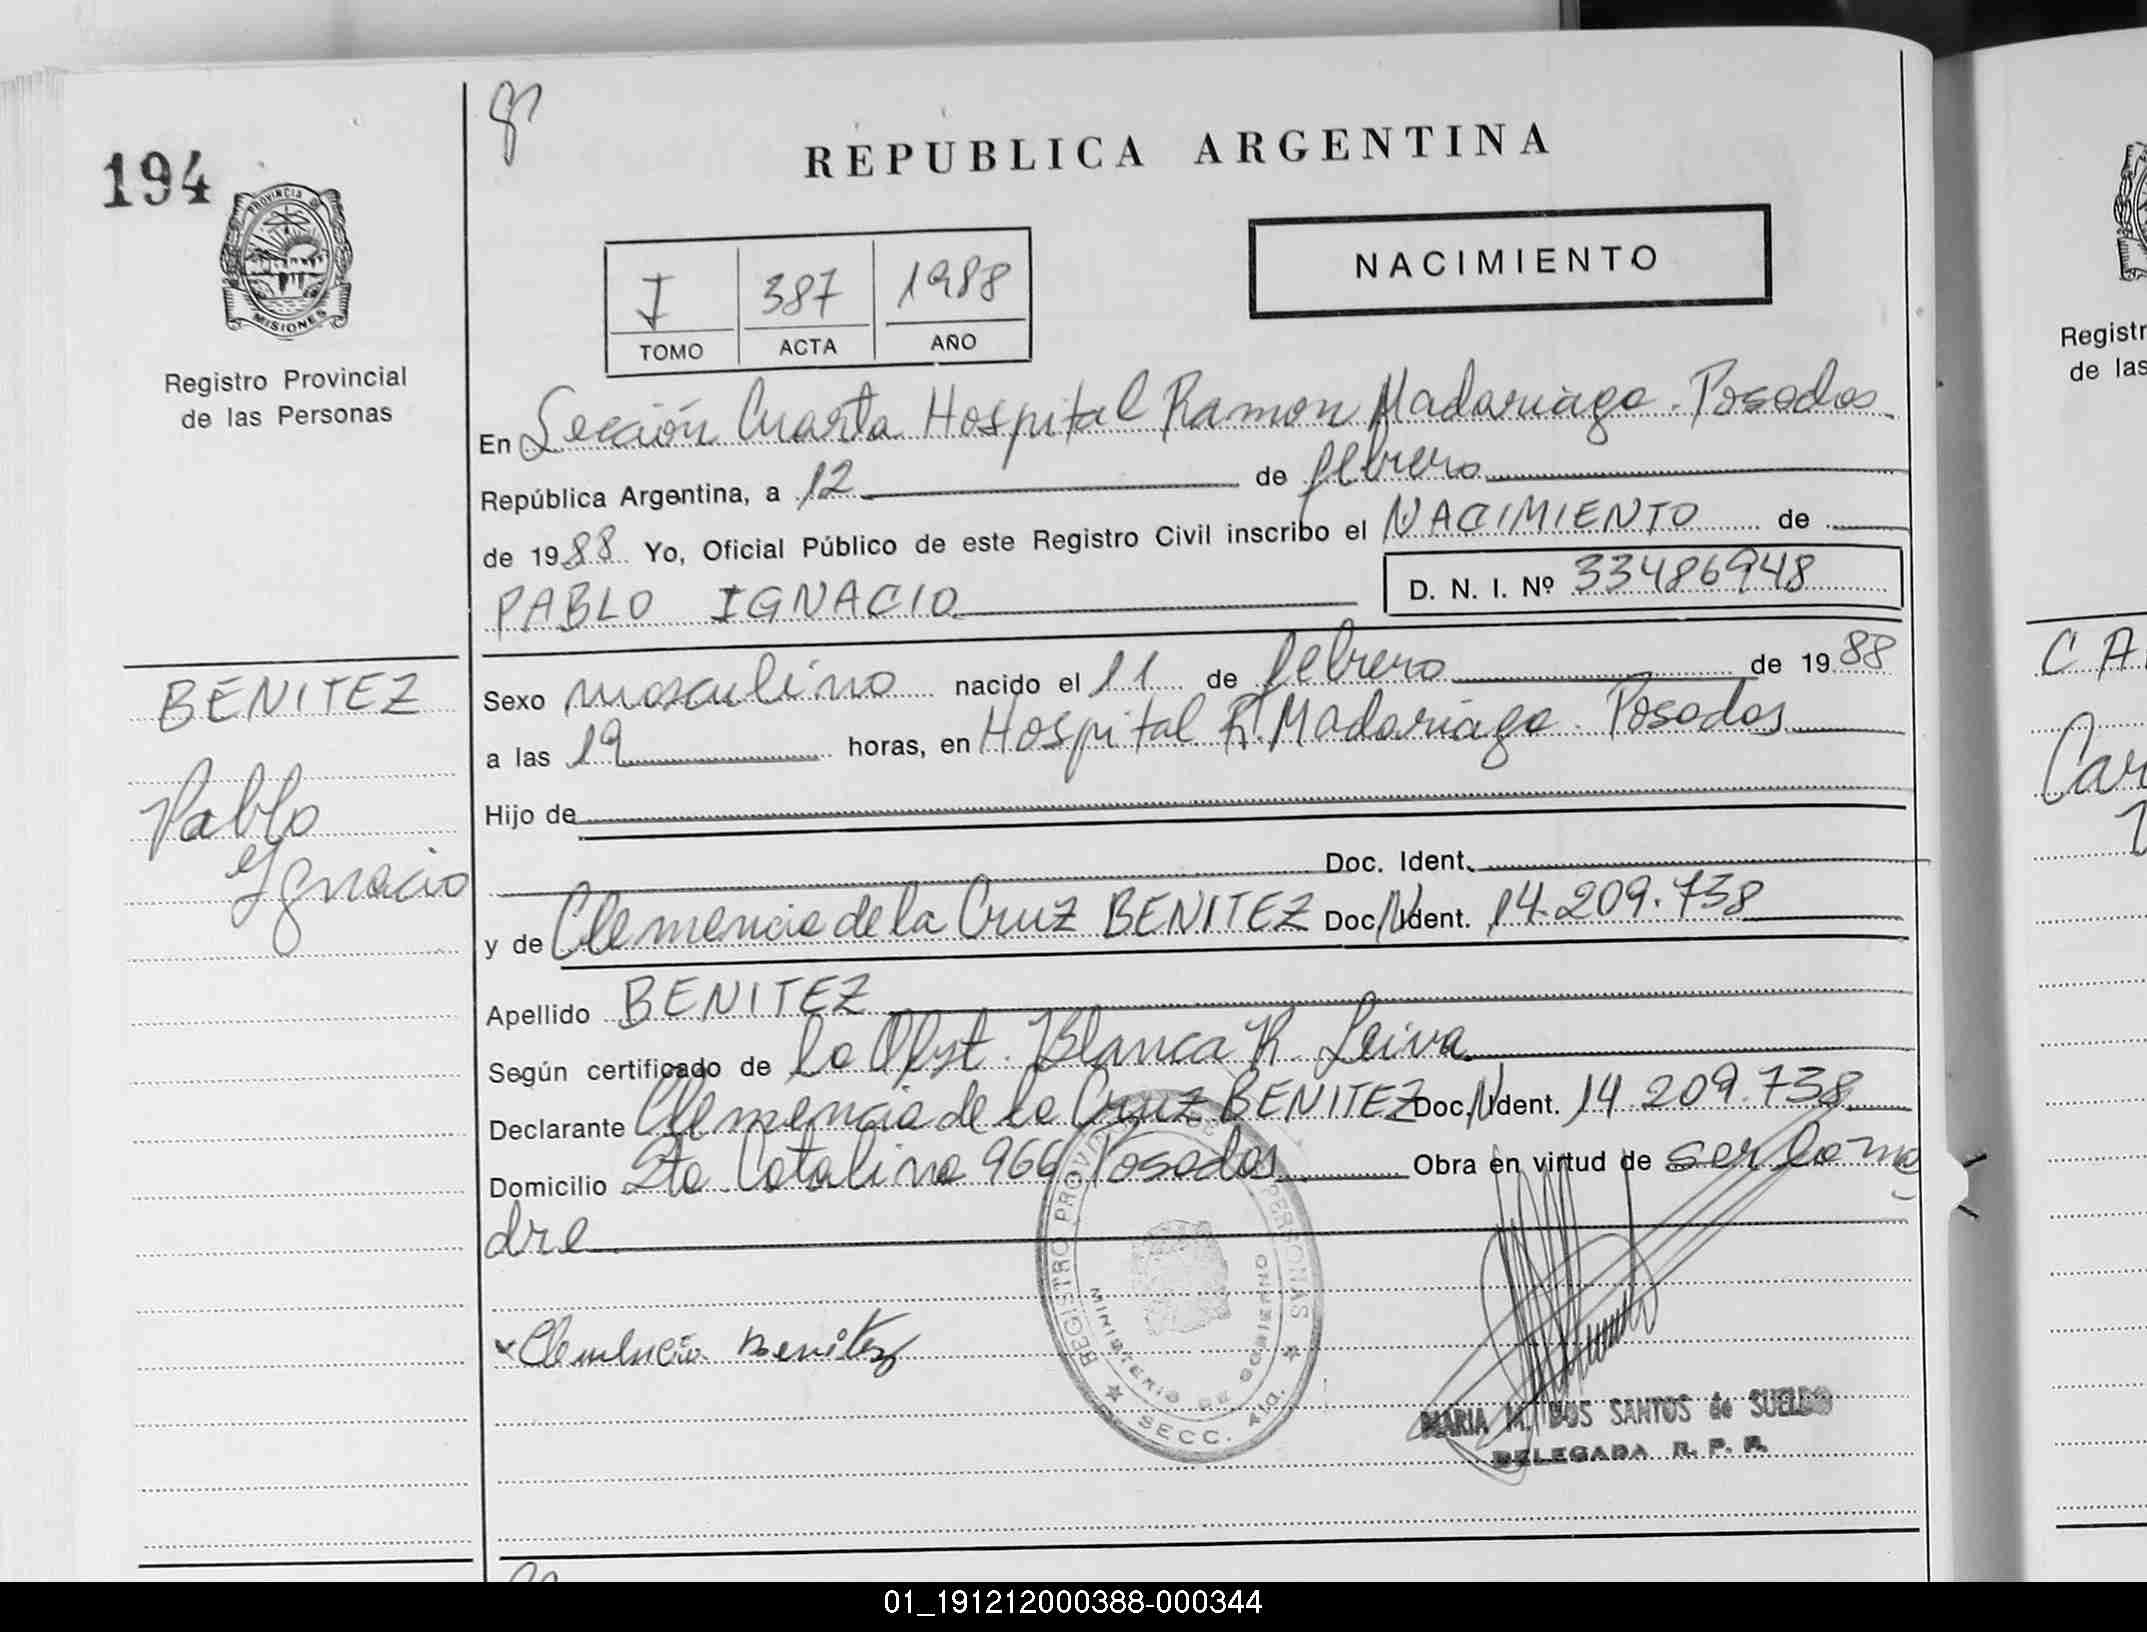 194
PROVINCIA DE
MISIONES
Registro Provincial
de las Personas
REPUBLICA ARGENTINA
I 387 1988
TOMO ACTA AÑO
NACIMIENTO
En Sección Cuarta Hospital Ramon Madariaga. Posadas
República Argentina, a 12 de febrero
de 1988 Yo, Oficial Público de este Registro Civil inscribo el NACIMIENTO de
PABLO IGNACIO D. N. I. Nº 33486948
BENITEZ
Pablo
Ignacio
Sexo masculino nacido el 11 de febrero de 1988
a las 19 horas, en Hospital R. Madariaga. Posadas
Hijo de
Doc. Ident.
y de Clemencia de la Cruz BENITEZ Doc. Ident. 14.209.738
Apellido BENITEZ
Según certificado de la Obst. Blanca R. Leiva
Declarante Clemencia de la Cruz BENITEZ Doc. Ident. 14 209.738
Domicilio Sta Catalina 966 Posadas Obra en virtud de ser la ma
dre
Clemencia Benitez
REGISTRO PROV. DE PERSONAS
MINISTERIO DE GOBIERNO
SECC. 4ta.
MARIA M. DOS SANTOS de SUELDO
DELEGADA R. P. P.
Registr
de las
CA
Car
01_191212000388-000344